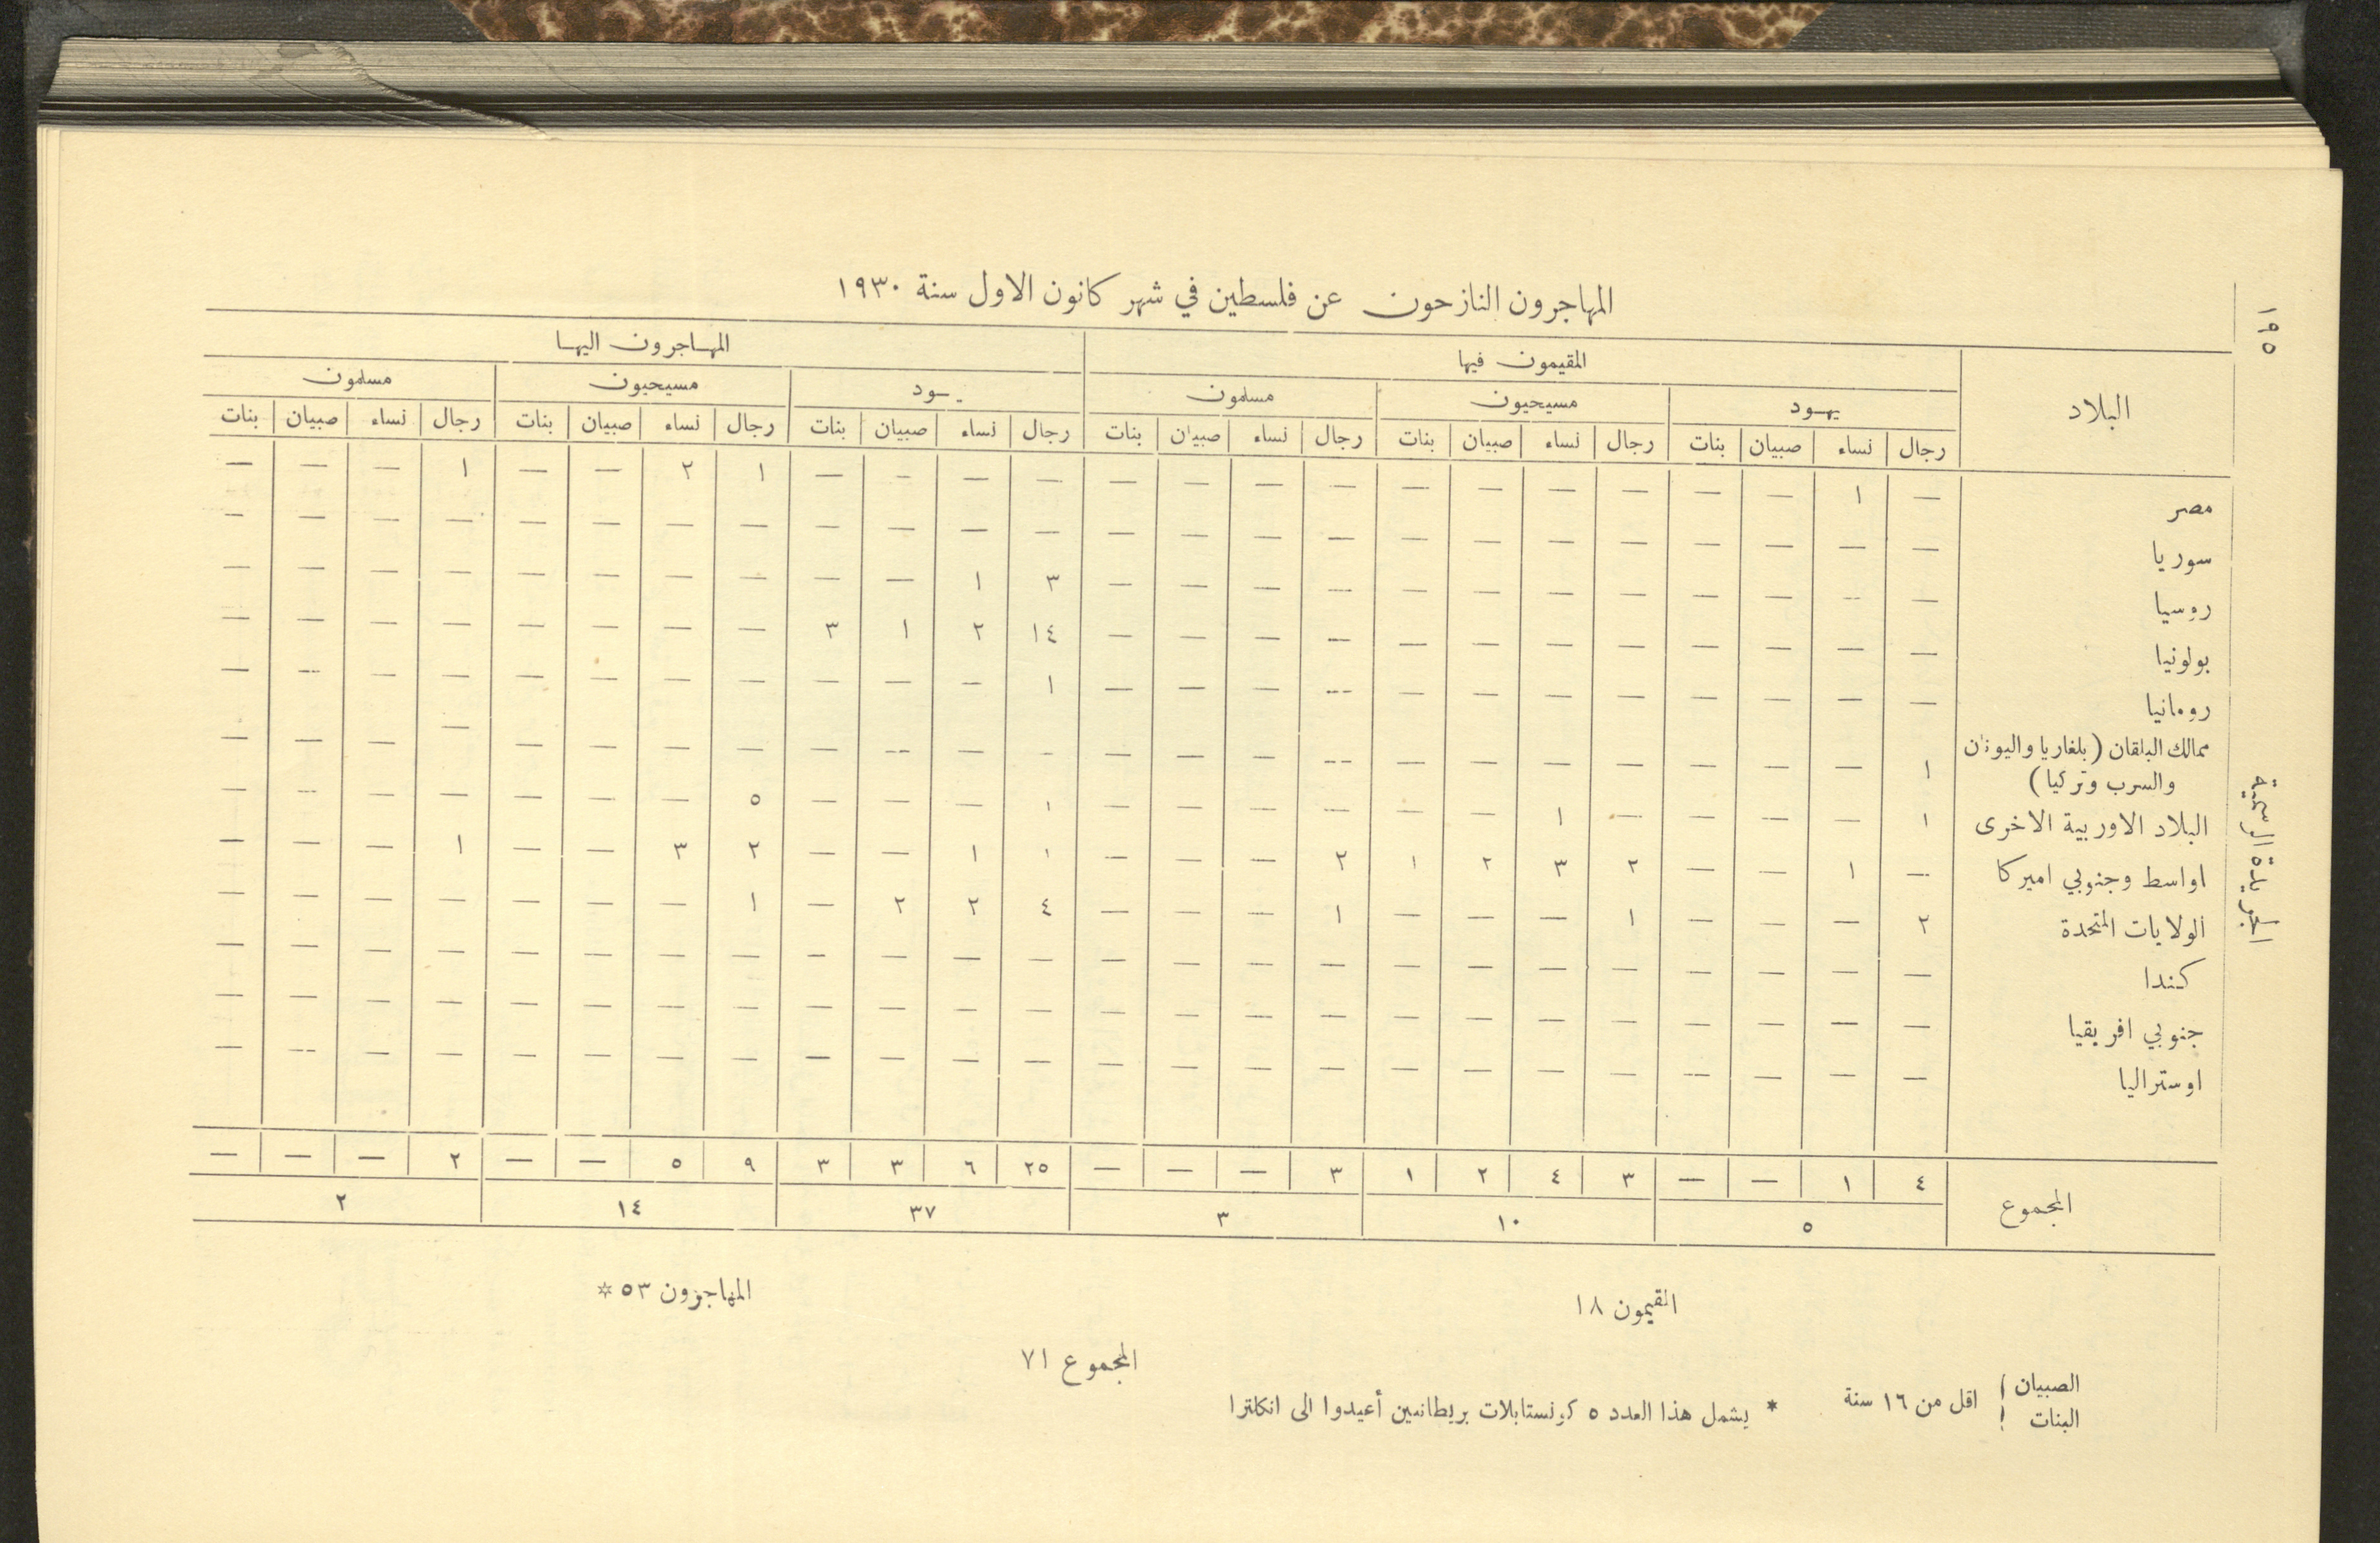 ١٩٥
الجريدة الرسمية
المهاجرون النازحون عن فلسطين في شهر كانون الاول سنة ١٩٣٠
البلاد | المقيمون فيها | المهاجرون اليها
يهود | مسيحيون | مسلمون | يهود | مسيحيون | مسلمون
رجال | نساء | صبيان | بنات | رجال | نساء | صبيان | بنات | رجال | نساء | صبيان | بنات | رجال | نساء | صبيان | بنات | رجال | نساء | صبيان | بنات | رجال | نساء | صبيان | بنات
مصر | — | ١ | — | — | — | — | — | — | — | — | — | — | — | — | — | — | ١ | ٢ | — | — | ١ | — | — | —
سوريا | — | — | — | — | — | — | — | — | — | — | — | — | — | — | — | — | — | — | — | — | — | — | — | —
روسيا | — | — | — | — | — | — | — | — | — | — | — | — | ٣ | ١ | — | — | — | — | — | — | — | — | — | —
بولونيا | — | — | — | — | — | — | — | — | — | — | — | — | ١٤ | ٢ | ١ | ٣ | — | — | — | — | — | — | — | —
رومانيا | — | — | — | — | — | — | — | — | — | — | — | — | ١ | — | — | — | — | — | — | — | — | — | — | —
ممالك البلقان (بلغاريا واليونان
والسرب وتركيا) | ١ | — | — | — | — | — | — | — | — | — | — | — | — | — | — | — | — | — | — | — | — | — | — | —
البلاد الاوربية الاخرى | ١ | — | — | — | — | ١ | — | — | — | — | — | — | ١ | — | — | — | ٥ | — | — | — | — | — | — | —
اواسط وجنوبي اميركا | — | ١ | — | — | ٢ | ٣ | ٢ | ١ | ٢ | — | — | — | ١ | ١ | — | — | ٢ | ٣ | — | — | ١ | — | — | —
الولايات المتحدة | ٢ | — | — | — | ١ | — | — | — | ١ | — | — | — | ٤ | ٢ | ٢ | — | ١ | — | — | — | — | — | — | —
كندا | — | — | — | — | — | — | — | — | — | — | — | — | — | — | — | — | — | — | — | — | — | — | — | —
جنوبي افريقيا | — | — | — | — | — | — | — | — | — | — | — | — | — | — | — | — | — | — | — | — | — | — | — | —
اوستراليا | — | — | — | — | — | — | — | — | — | — | — | — | — | — | — | — | — | — | — | — | — | — | — | —
المجموع | ٤ | ١ | — | — | ٣ | ٤ | ٢ | ١ | ٣ | — | — | — | ٢٥ | ٦ | ٣ | ٣ | ٩ | ٥ | — | — | ٢ | — | — | —
٥ | ١٠ | ٣ | ٣٧ | ١٤ | ٢
المقيمون ١٨ المهاجرون ٥٣ *
المجموع ٧١
الصبيان
البنات } اقل من ١٦ سنة * يشمل هذا العدد ٥ كونستابلات بريطانيين أعيدوا الى انكلترا